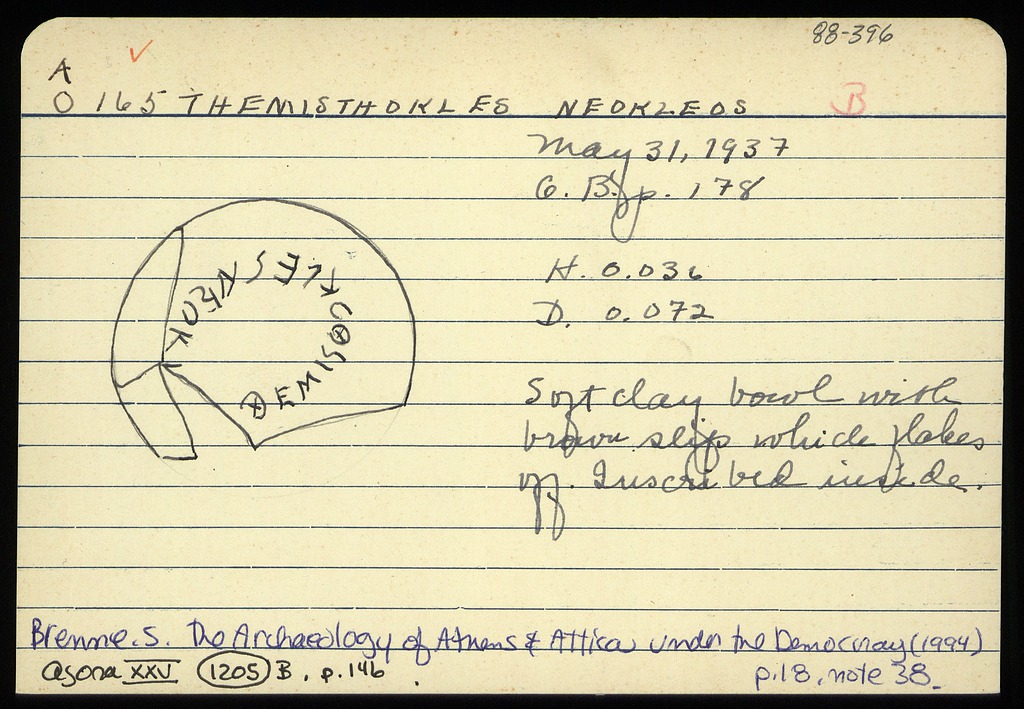 88-396
A
O 165 THEMISTHOKLES NEOKLEOS B
May 31, 1937
G. B. p. 178
H. 0.036
D. 0.072
Soft clay bowl with
brown slip which flakes
off. Inscribed inside.
Brenne.S. The Archaeology of Athens & Attica under the Democracy (1994)
p.18, note 38.
Agora XXV 1205 B, p. 146.